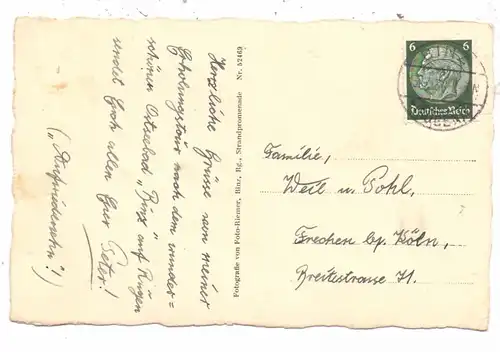 Herzliche Grüsse von meiner
Erholungstour nach dem wunder=
schönen Ostseebad „Binz auf Rügen
sendet Euch allen Euer Peter!
(„Aufwiedersehn"!)
Photografie von Foto-Riemer, Binz, Rg., Strandpromenade Nr. 52463
6 6
Deutsches Reich
Familie,
Weil u. Pohl,
Frechen bg. Köln,
Breitestrasse 71.